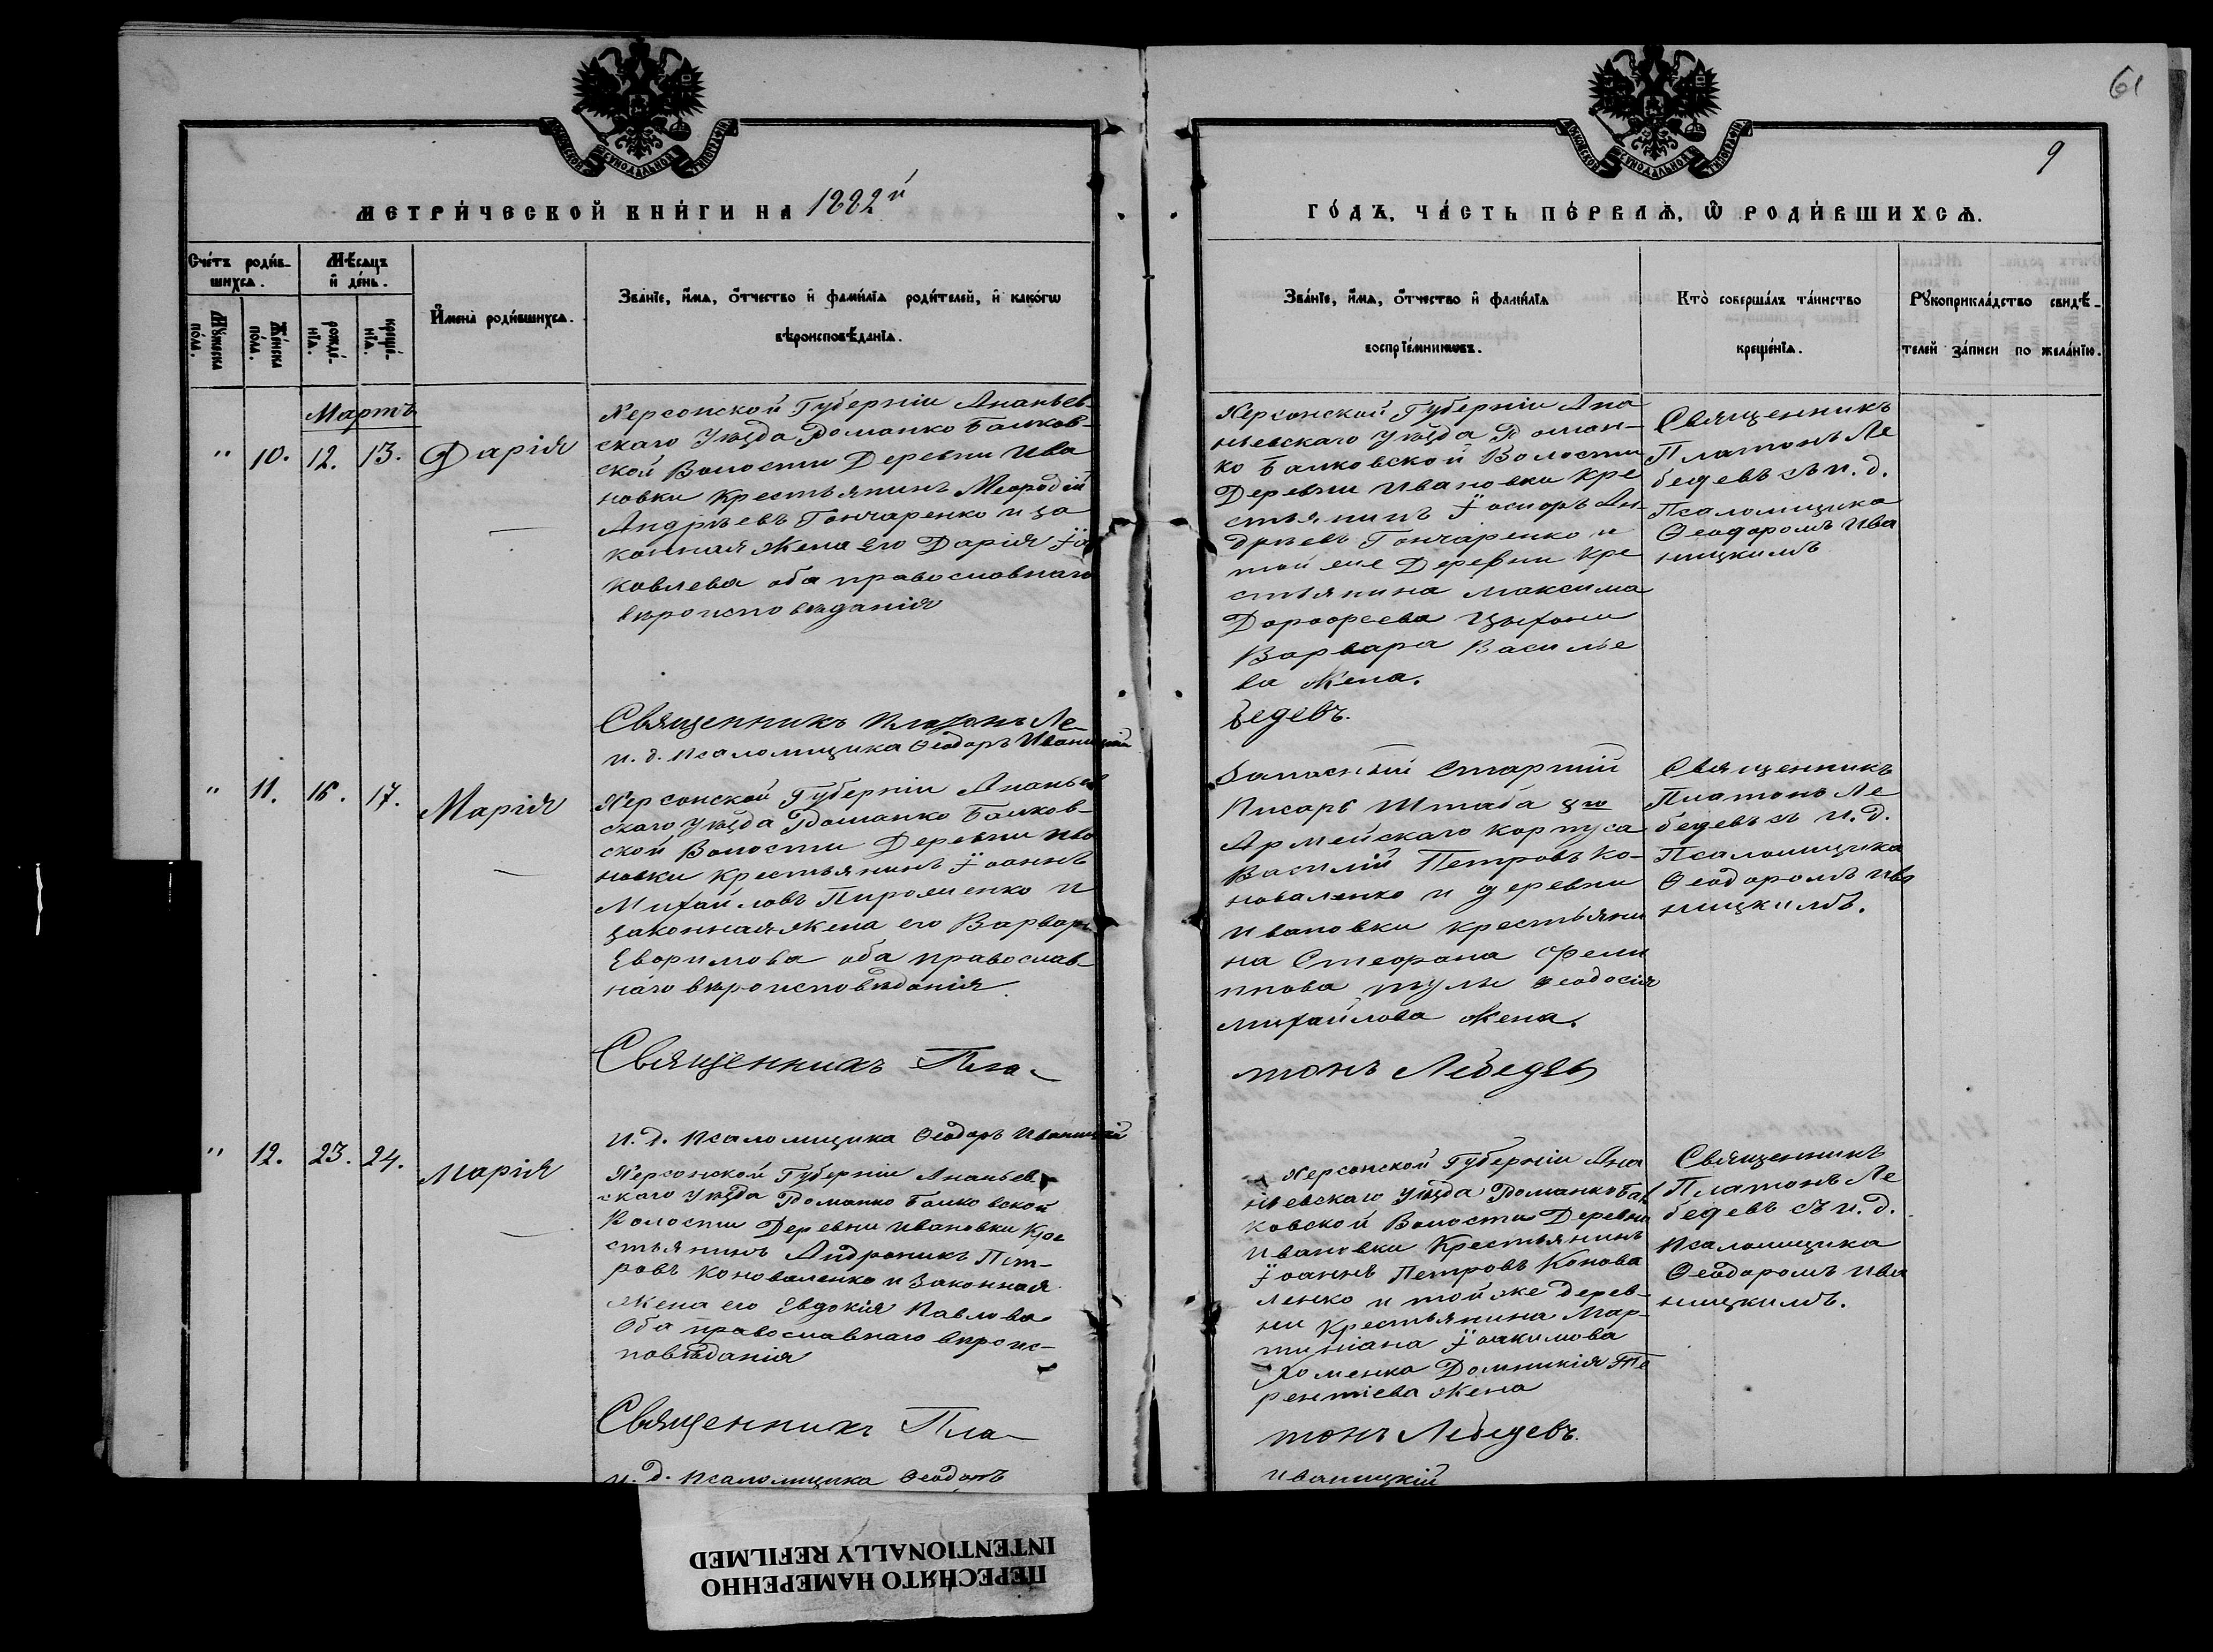 61
9
МЕТРИ́ЧЕСКОЙ КНИ́ГИ НА 1882й
ГО́ДЪ, ЧА́СТЬ ПЕ́РВАѦ, Ѡ҆ РОДИ́ВШИХСѦ.
Сче́тъ роди́в-
шихсѧ.
Мѣ́сѧцъ
и҆ де́нь.
Мꙋ́жеска
по́ла.
Же́нска
по́ла.
рожде́-
нїѧ.
креще́-
нїѧ.
И҆мена̀ роди́вшихсѧ.
Зва́нїе, и҆́мѧ, ѻ҆́тчество и҆ фами́лїѧ роди́телей, и҆ како́гѡ
вѣроисповѣ́данїѧ.
Зва́нїе, и҆́мѧ, ѻ҆́тчество и҆ фами́лїѧ
воспрїе́мникѡвъ.
Кто̀ соверша́лъ та́инство
креще́нїѧ.
Рꙋкоприкла́дство свидѣ́-
телей за́писи по жела́нїю.
Мартъ
" 10. 12. 13. Дарія
Херсонской Губерніи Ананьев-
скаго Уѣзда Романко Балков-
ской Волости Деревни Ива
новки Крестьянинъ Меѳодій
Андрѣевъ Гончаренко и за
конная жена его Дарія Іа
ковлева оба православнаго
вѣроисповѣданія
Херсонской Губерніи Ана
ньевскаго Уѣзда Роман-
ко Балковской Волости
Деревни Ивановки Кре
стьянинъ Іосифъ Ан-
дрѣевъ Гончаренко и
той же Деревни Кре
стьянина Максима
Дорофеева
Варвара Василье
ва Жена.
Священникъ
Платонъ Ле
бедевъ съ и. д.
Псаломщика
Ѳеодоромъ Ива
ницкимъ
Священникъ Платонъ Ле-
бедевъ.
и. д. Псаломщика Ѳеодоръ Иваницкій
" 11. 16. 17. Марія
Херсонской Губерніи Ананьев
скаго Уѣзда Романко Балков-
ской Волости Деревни Ива
новки Крестьянинъ Іоаннъ
Михайловъ Пироженко и
законная жена его Варвара
Евфимова оба православ-
наго вѣроисповѣданія.
Запасный Старшій
Писарь Штаба 8го
Армейскаго Корпуса
Василій Петровъ Ко-
новаленко и деревни
Ивановки крестьяни
на Стефана Фели
ппова Ѳеодосія
Михайлова Жена.
Священникъ
Платонъ Ле
бедевъ съ и. д.
Псаломщика
Ѳеодоромъ Ива
ницкимъ.
Священникъ Пла-
тонъ Лебедевъ
и. д. Псаломщика Ѳеодоръ Иваницкій
" 12. 23. 24. Марія
Херсонской Губерніи Ананьев
скаго Уѣзда Романко Балковской
Волости Деревни Ивановки Кре
стьянинъ Андроникъ Пет-
ровъ Коноваленко и Законная
жена его Евдокія Павлова
Оба православнаго вѣроис-
повѣданія
Херсонской Губерніи Ана
ньевскаго Уѣзда Романко Бал
ковской Волости Деревни
Ивановки Крестьянинъ
Іоаннъ Петровъ Конова
ленко и той же дерев-
ни Крестьянина Мар-
тиніана Іоакимова
Хоменка Домникія Те
рентіева Жена
Священникъ
Платонъ Ле
бедевъ съ и. д.
Псаломщика
Ѳеодоромъ Ива
ницкимъ.
Священникъ Пла-
тонъ Лебедевъ.
и. д. Псаломщика Ѳеодоръ
Иваницкій
ПЕРЕСНЯТО НАМЕРЕННО
INTENTIONALLY REFILMED